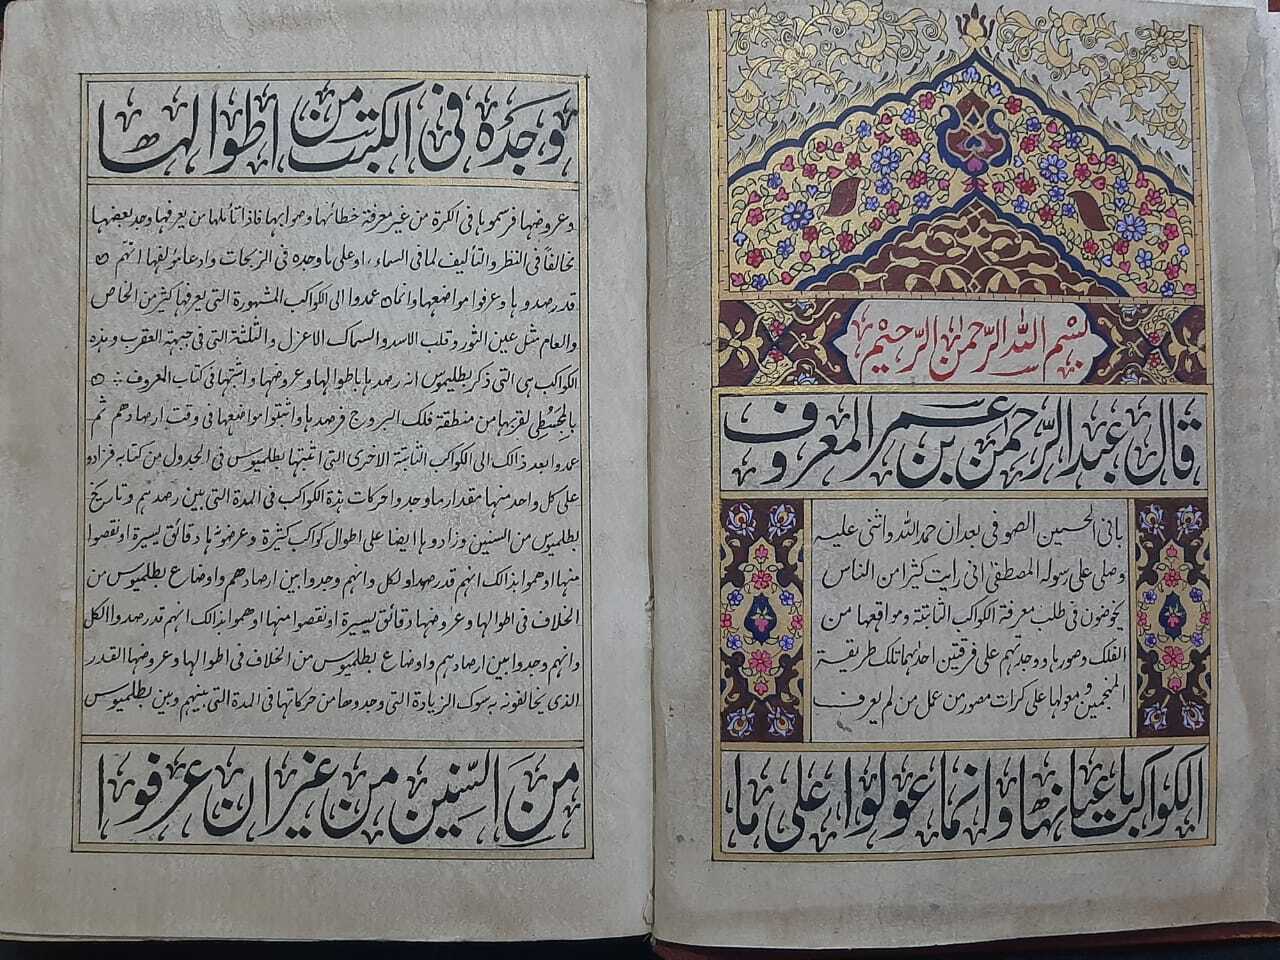 بسم الله الرحمن الرحيم
قال عبد الرحمن بن عمر المعروف
بابى الحسين الصوفى بعد ان حمد الله واثنى عليه
وصلى على سوله المصطفى انى رايت كثرا من الناس
يخوضون فى طلب معرفة الكواكب الثابتة ومواقعها من
الفلك وصورها ووجدتهم على فرقتين احدهما تلك طريقة
المنجمين ومولها على كرات مصور من عمل من لم يعرف
الكواكب باعيانها وانما عولوا على ما
وجده فى الكتب من اطوالها
وعروضها فرسموها فى الكرة من غير معرفة خطائها وصوابها فاذا تأملها من يعرفها وجد بعضها
مخالفا فى النظر والتأليف لما فى السماء او على ما وجده فى الزيجات وادعا مؤلفها انهم
قد رصدوها وعرفوا مواضعها وانما عمدوا الى الكواكب المشهورة التى يعرفها كثر من الخاص
والعام مثل عين الثور وقلب الاسد والسماك الاعزل والثلثة التى فى جبهة العقرب وهذه
الكواكب هى التى ذكر بطليموس انه رصدها باطوالها وعروضها واثبتها فى كتاب المعروف
بالمجسطى لقربها من منطقة فلك البروج فرصدها واثبتوا مواضعها فى وقت ارصادهم ثم
عمدوا بعد ذالك الى الكواكب الثابتة الاخرى التى اثبتها بطلميوس فى الجدول من كتابه فزاده
على كل واحد منها مقدار ما وجدوا حركات هذة الكواكب فى المدة التى بين رصدهم وتاريخ
بطلميوس من السنين وزادوها ايضا على اطوال كواكب كثيرة وعروضها دقائق يسيرة او نقصوا
منها اوهموا بذالك انهم قد رصدوا لكل وانهم وجدوا بين ارصادهم واوضاع بطلميوس من
الخلاف فى اطوالها وعروضها دقائق يسيرة او نقصوا منها اوهموا بذالك انهم قد رصدوا الكل
وانهم وجدوا بين ارصادهم واوضاع بطلميوس من الخلاف فى اطوالها وعروضها القدر
الذى يخالفونه به سوك الزيادة التى وجدوها من حركاتها فى المدة التى بينهم وبين بطلميوس
من السنين من غير ان عرفوا